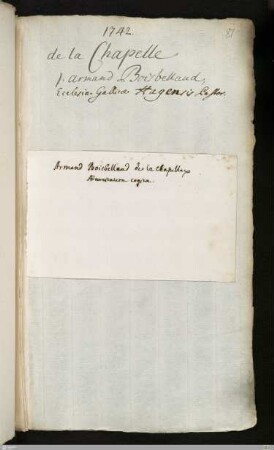 1742.
de la Chapelle
J. Armand Boisbelleau,
Ecclesiae Gallicae Hagensis Pastor.
Armand Boisbelleau de la Chapelle